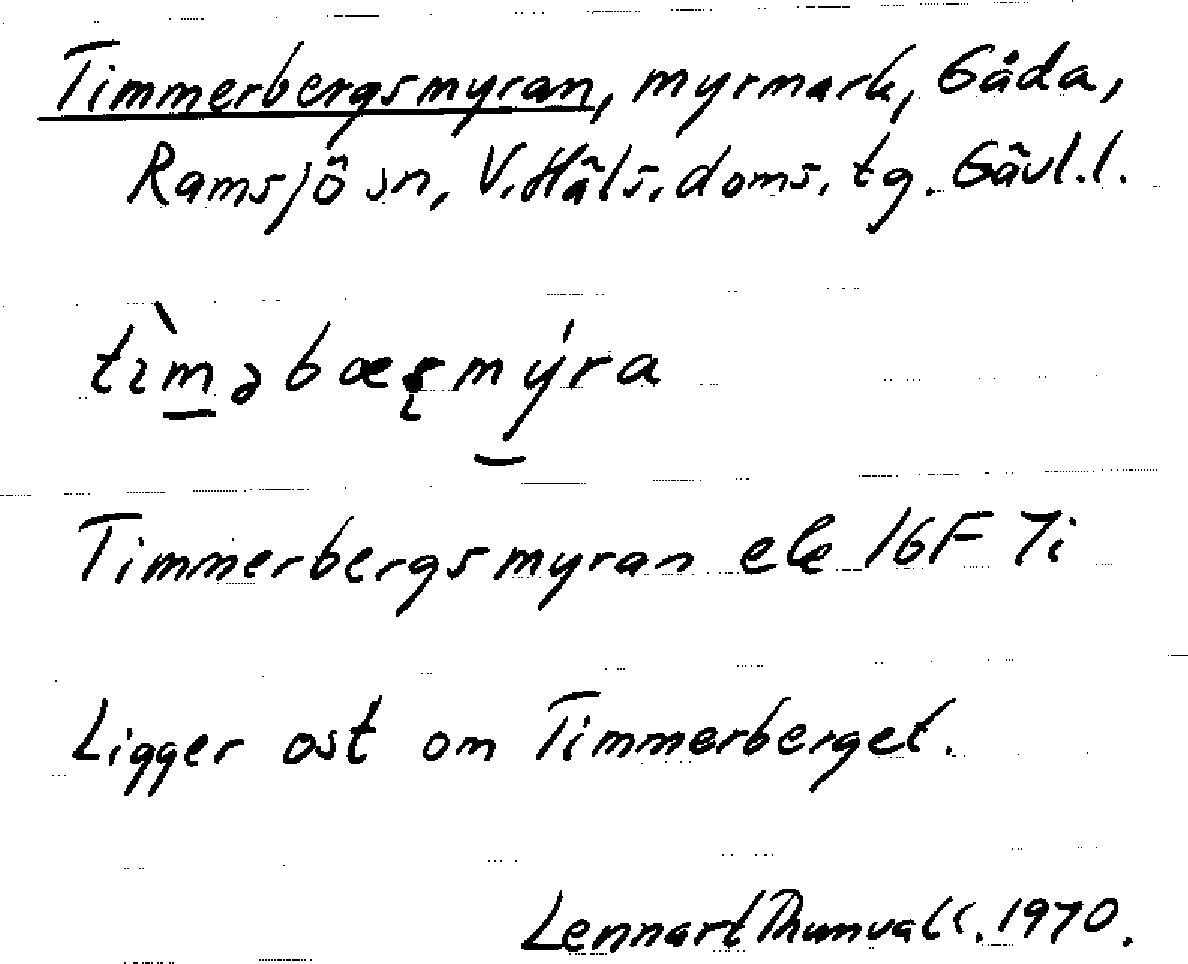 Timmerbergsmyran, myrmark, Gåda,
Ramsjö sn, V. Häls. doms. tg. Gävl. l.
Timmerbergsmyran ek 16F 7i
Ligger ost om Timmerberget.
Lennart Thunvall. 1970.